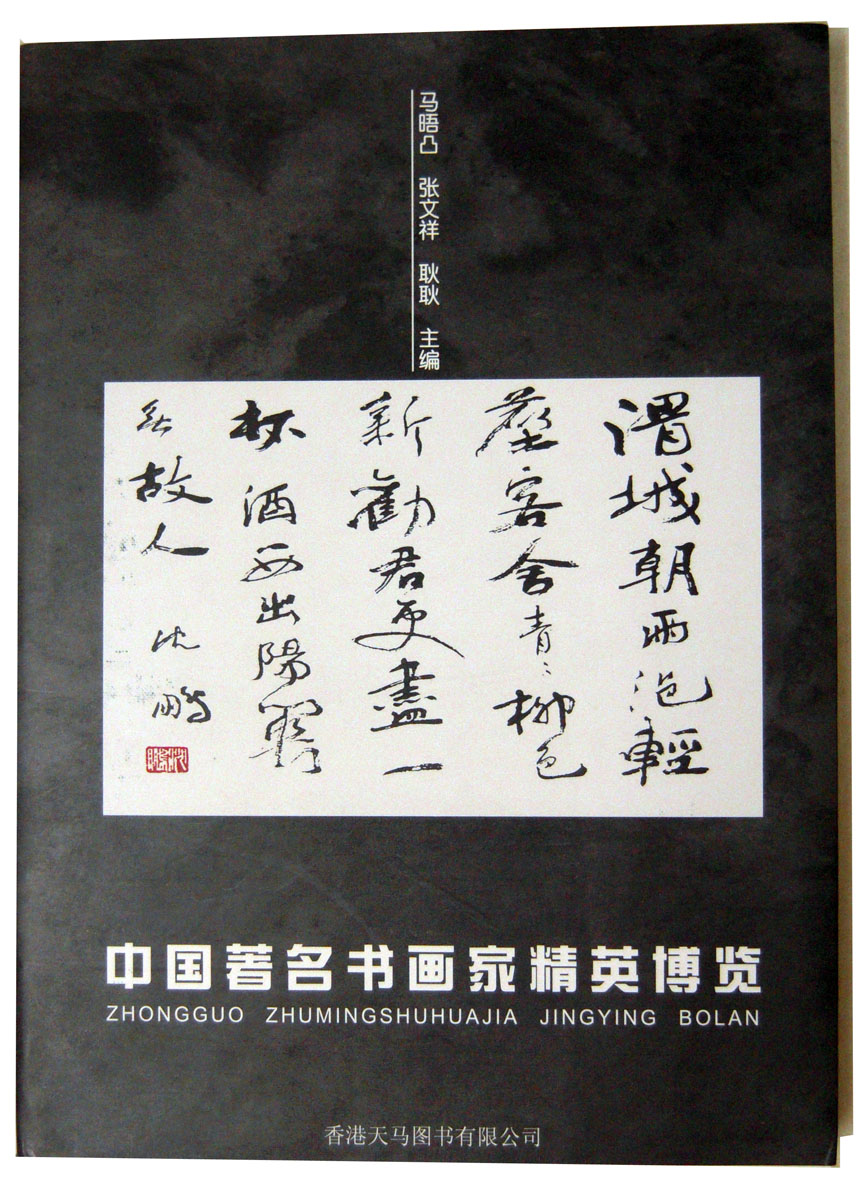 马晤凸 张文祥 耿耿 主编
渭城朝雨浥輕
塵客舍青〻柳色
新勸君更盡一
杯酒西出陽關
無故人 沈
鵬
沈鵬
中国著名书画家精英博览
ZHONGGUO ZHUMINGSHUHUAJIA JINGYING BOLAN
香港天马图书有限公司